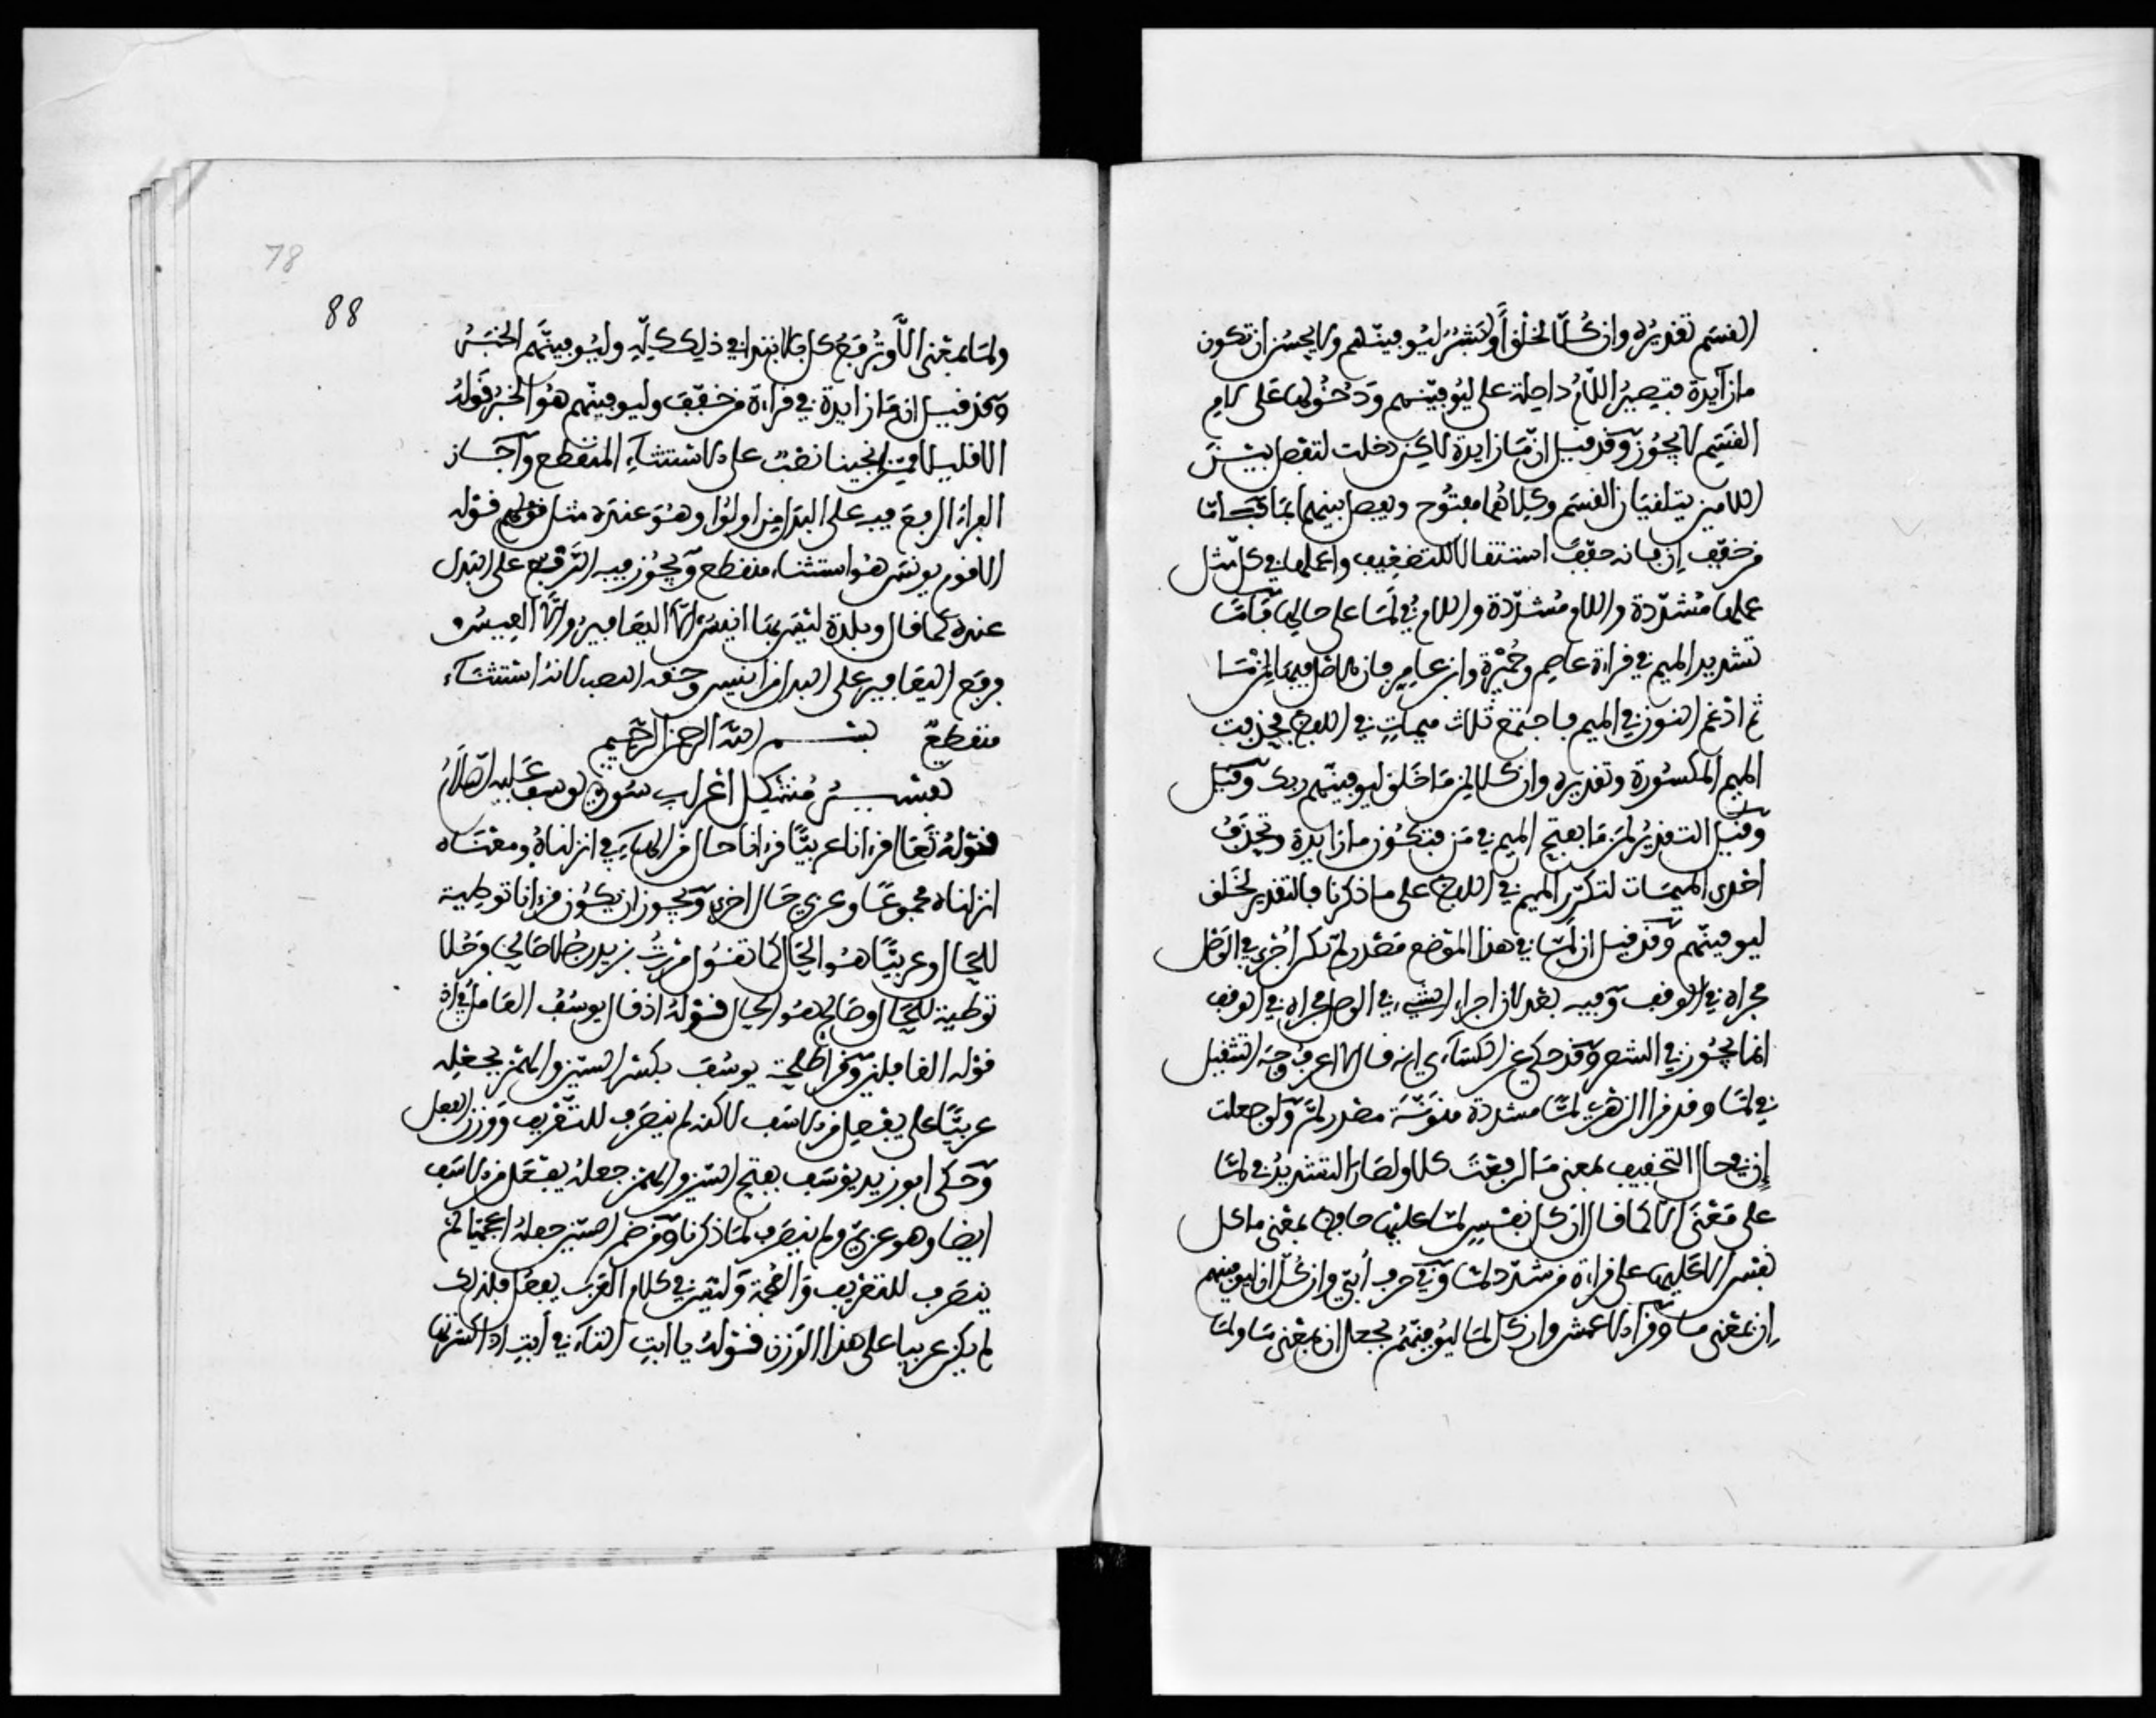 القسم تقديره وان كلا لخلق او لبشر ليوفينهم ولا يحسن ان تكون
ما زايدة فتصير اللام داخلة على ليوفينهم ودخولها على لام
القسم لا يجوز وقد قيل ان ما زايدة لاكن دخلت لتفصل بين
اللامين يتلقيان القسم وكلاهما مفتوح وفصل بينهما بما فاما
من خفف إن فانه خفف استثقالا للتضعيف واعملها في كل مثل
عملها مشددة واللام مشددة واللام في لما على حالها فاما
تشديد الميم في قراءة عاصم وحمزة وابن عامر فان الاصل فيها لمن ما
ثم ادغم النون في الميم فاجتمع ثلاث ميمات في اللفظ فحذفت
الميم المكسورة وتقديره وان كلا لمن ما خلق ليوفينهم ربك وقيل
وقيل التقدير لمن ما بفتح الميم في من فتكون ما زايدة وتحذف
احدى الميمات لتكرر الميم في اللفظ على ما ذكرنا فالتقدير لخلق
ليوفينهم وقد قيل ان لما في هذا الموضع مصدر لم لكن أجري في الوصل
مجراه في الوقف وفيه بعد لان اجراء الشيء في الوصل مجراه في الوقف
انما يجوز في الشعر وقد حكي عن الكساءي انه قال لا اعرف وجه التثقيل
في لما وقد قرا الزهري لما مشددة منونة مصدر لم ولو جعلت
إن في حال التخفيف بمعنى ما لرفعت كلا ولصار التشديد في لما
على معنى الا كما قال ان كل نفس لما عليها حافظ بمعنى ما كل
نفس الا عليها على قراءة من شدد لما وفي حرف أبي وان كل الا ليوفينهم
إن بمعنى ما وقرا الاعمش وان كل لما ليوفينهم بجعل ان بمعنى ما ولما
78
88
ولما بمعنى الا وترفع كل بالابتداء في ذلك كله وليوفينهم الخبر
وقد قيل ان ما زايدة في قراءة من خفف وليوفينهم هو الخبر قوله
الا قليلا ممن انجينا نصب على الاستثناء المنقطع واجاز
الفراء الرفع فيه على البدل من اولوا وهو عنده مثل قولهم قوله
الا قوم يونس هو استثناء منقطع ويجوز فيه الترفيع على البدل
عنده كما قال وبلدة ليس بها انيس الا اليعافير والا العيس
فرفع اليعافير على البدل من انيس وحقه النصب لانه استثناء
منقطع بسم الله الرحمن الرحيم
تفسير مشكل اعراب سورة يوسف عليه السلام
قوله تعالى قرانا عربيا قرانا حال من الهاء في انزلناه ومعناه
انزلناه مجموعا وعربي حال اخرى ويجوز ان يكون قرانا توطية
للحال وعربيا هو الحال كما تقول مررت بزيد رجلا صالحا فرجلا
توطية للحال وصالحا هو الحال قوله اذ قال يوسف العامل في اذ
قوله الغافلين وقرا طلحة يوسف بكسر السين والهمز بجعله
عربيا على يفعل من الاسف لاكنه لم ينصرف للتعريف ووزن الفعل
وحكى ابو زيد يوسف بفتح السين والهمز جعله يفعل من الاسف
ايضا وهو عربي ولم ينصرف لما ذكرنا ومن ضم السين جعله اعجميا لم
ينصرف للتعريف والعجمة وليس في كلام العرب يفعل فلذلك
لم يكن عربيا على هذا الوزن قوله يا ابت التاء في أبت اذا كسرتها